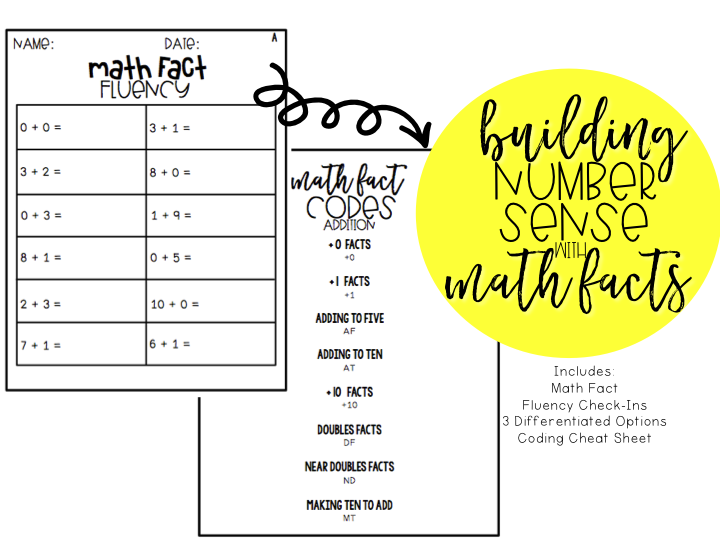 NAME: DATE: A
math Fact
FLUENCY
0 + 0 = 3 + 1 =
3 + 2 = 8 + 0 =
0 + 3 = 1 + 9 =
8 + 1 = 0 + 5 =
2 + 3 = 10 + 0 =
7 + 1 = 6 + 1 =
math fact
CODES
ADDITION
+0 FACTS
+0
+1 FACTS
+1
ADDING TO FIVE
AF
ADDING TO TEN
AT
+10 FACTS
+10
DOUBLES FACTS
DF
NEAR DOUBLES FACTS
ND
MAKING TEN TO ADD
MT
building
NUMBER
SENSE
WITH
math facts
Includes:
Math Fact
Fluency Check-Ins
3 Differentiated Options
Coding Cheat Sheet